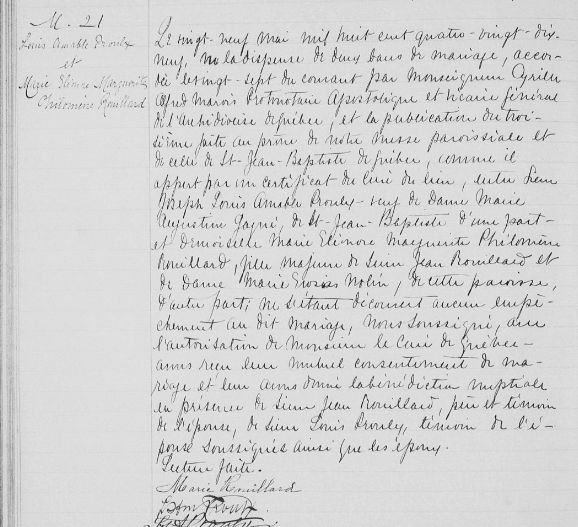 M. 21
Louis Amable Proulx
et
Marie Elénore Marguerite
Philomène Rouillard
Le vingt-neuf mai mil huit cent quatre-vingt-dix-
neuf, vu la dispense de deux bans de mariage, accor-
dée le vingt-sept du courant par Monseigneur Cyrille
Alfred Marois Protonotaire Apostolique et vicaire général
de l'Archidiocèse de Québec, et la publication du troi-
sième faite au prône de notre messe paroissiale et
de celle de St-Jean-Baptiste de Québec, comme il
appert par un certificat du Curé du lieu, entre Sieur
Joseph Louis Amable Proulx veuf de Dame Marie
Augustine Gagné, de St-Jean-Baptiste d'une part
et demoiselle Marie Elénore Marguerite Philomène
Rouillard, fille majeure de Sieur Jean Rouillard et
de Dame Marie Nolin, de cette paroisse,
d'autre part; ne s'étant découvert aucun empê-
chement au dit mariage, Nous soussigné, avec
l'autorisation de Monsieur le Curé de Québec
avons reçu leur mutuel consentement de ma-
riage et leur avons donné la bénédiction nuptiale
en présence de Sieur Jean Rouillard, père et témoin
de l'épouse, de Sieur Louis Proulx, témoin de l'é-
poux soussignés ainsi que les époux.
Lecture faite.
Marie Rouillard
Proulx